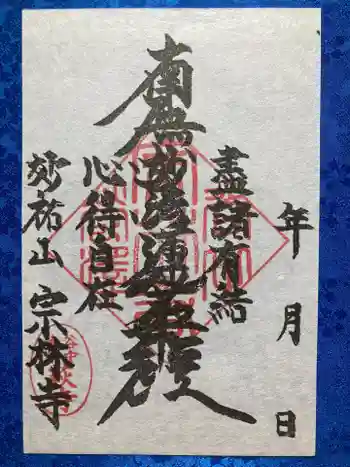 年月日
盡諸有結
南無妙法蓮華経
心得自在
妙祐山 宗林寺